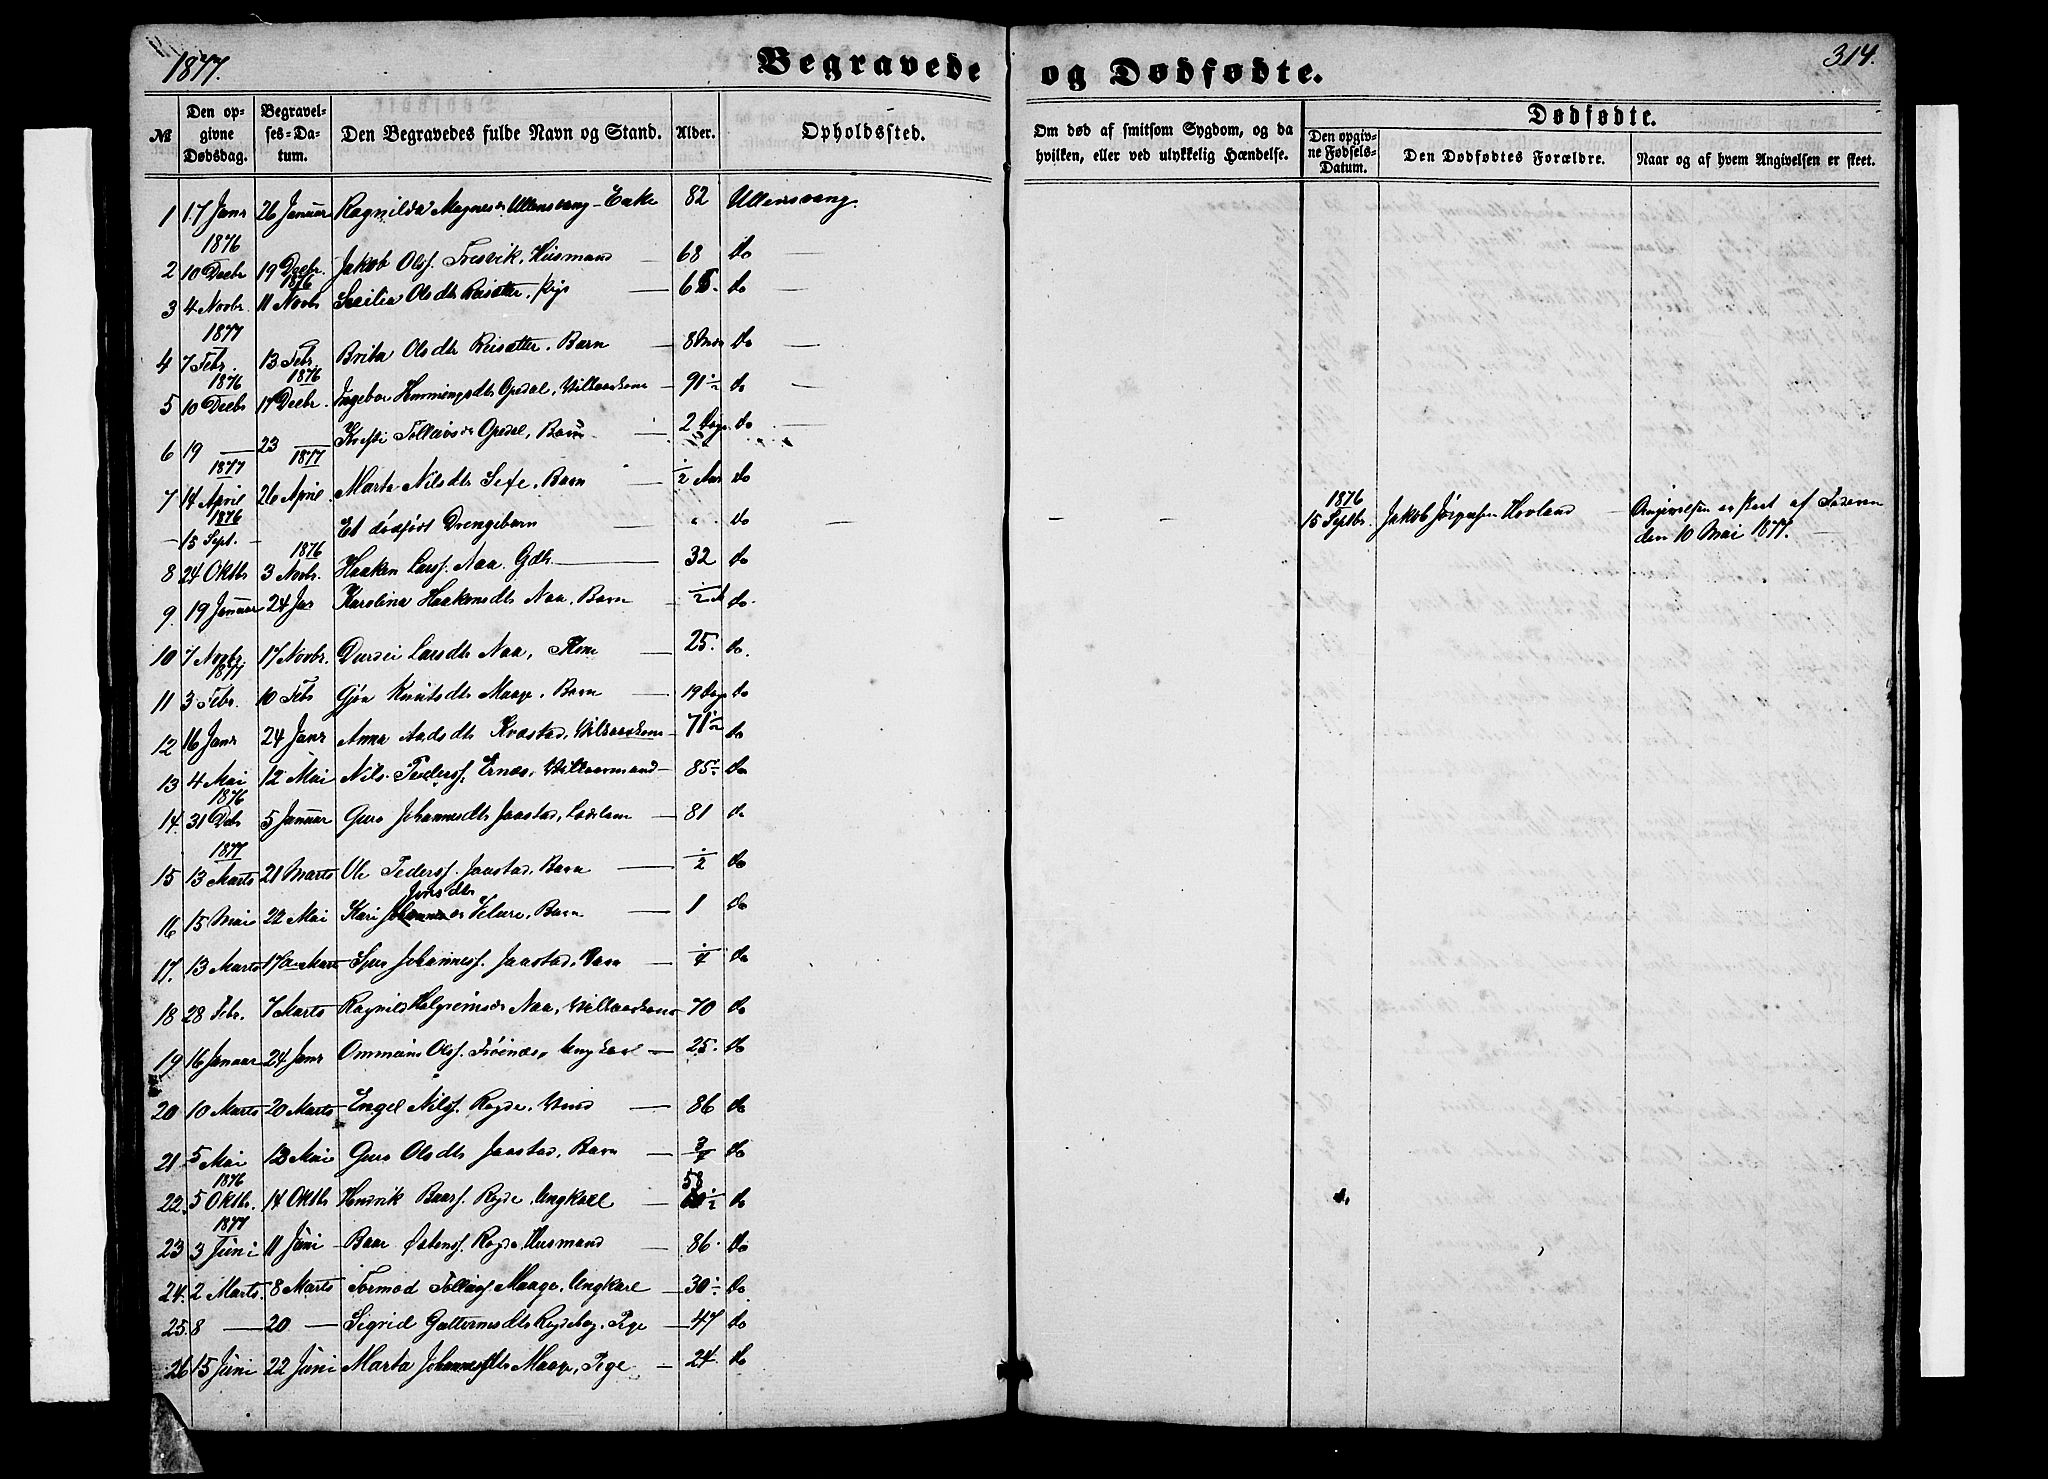 1877.
Begravede og Dødfødte.
314.
№
Den opgivne Dødsdag.
Begravelses-Datum.
Den Begravedes fulde Navn og Stand.
Alder.
Opholdssted.
Om død af smitsom Sygdom, og da hvilken, eller ved ulykkelig Hændelse.
Dødfødte.
Den opgivne Fødsels-Datum.
Den Dødfødtes Forældre.
Naar og af hvem Angivelsen er skeet.
1 17 Janr 26 Januar Ragnilda Magnesdr Ullensvang - Enke 82 Ullensvang.
1876
2 10 Decbr 19 Decbr. Jakob Olsf. Tresvik, Husmand 68 do
1876
3 4 Novbr. 11 Novbr Olsdtr Reisæter. Pige 65. do
1877
4 7 Febr. 13 Febr. Brita Olsdtr Reisæter. Barn 8 Mdr do
1876 1876
5 10 Decbr 17 Decbr. Ingebor Hemmingsdtr Opedal, Vilkaarskone 91 1/2 do
6 19 — 23 — Opedal, Barn 2 Dage do
1877 1877
7 14 April 26 April Marta Nilsdtr Sexe, Barn 1/2 Aar do
1876
— 15 Sept. - Et dødfødt Drengebarn " do — —
1876
15 Septbr. Jakob Hovland — Angivelsen er skeet af Faderen
den 10 Mai 1877.
1876
8 24 Oktbr 3 Novbr. Haaken Larsf. Naa. Gdbr. 32 do
9. 19 Januar 24 Jan Karolina Haakensdtr Naa, Barn 1/2 do.
10 7 Novbr. 17 Novbr. Larsdtr Naa, Kone 25. do.
1877
11 3 Febr. 10 Febr Gjøa Knutsdtr Maage, Barn 19 Dage do
12 16 Janr 24 Janr Anna Aadsdtr Kvæstad, Vilkaarskone 71 1/2 do
13 4 Mai 12 Mai Nils Pedersf. Ernæs, Vilkaarsmand 85 1/2 do
1876
14. 31 Decbr 5 Januar Guro Johannesdtr Jaastad, 81 do
1877
15 13 Marts 21 Marts Ole Pedersf. Jaastad, Barn 1/2 do
Jonsdtr
16 15 Mai 22 Mai Kari Velure, Barn 1 do
17. 13 Marts 17de Marts Johannesf. Jaastad, Barn 1/4 do
18 28 Febr. 7 Marts Ragnild Helgreimsdr Naa, Vilkaarskone 70 do
19 16 Januar 24 Janr Ommund Olsf. Frøenæs, Ungkarl 25. do
20 10 Marts 20 Marts Engel Nilsf. Rogde, 86 do
21 5 Mai 12 Mai Guro Olsdtr Jaastad, Barn 3/4 do
1876 58
22. 5 Oktbr. 14 Oktbr Hendrik Baarsf. Rogde, Ungkarl 1/2 do
1877
23 3 Juni 11 Juni Baar Østensf. Rogde, Husmand 86. do
24. 2 Marts. 8 Marts Tormod Maage, Ungkarl 30 1/2 do
25. 8 — 20 — Sigrid Guttormsdtr Pige 47 do
26 15 Juni 22 Juni Marta Johannesdtr Maage, Pige 24. do